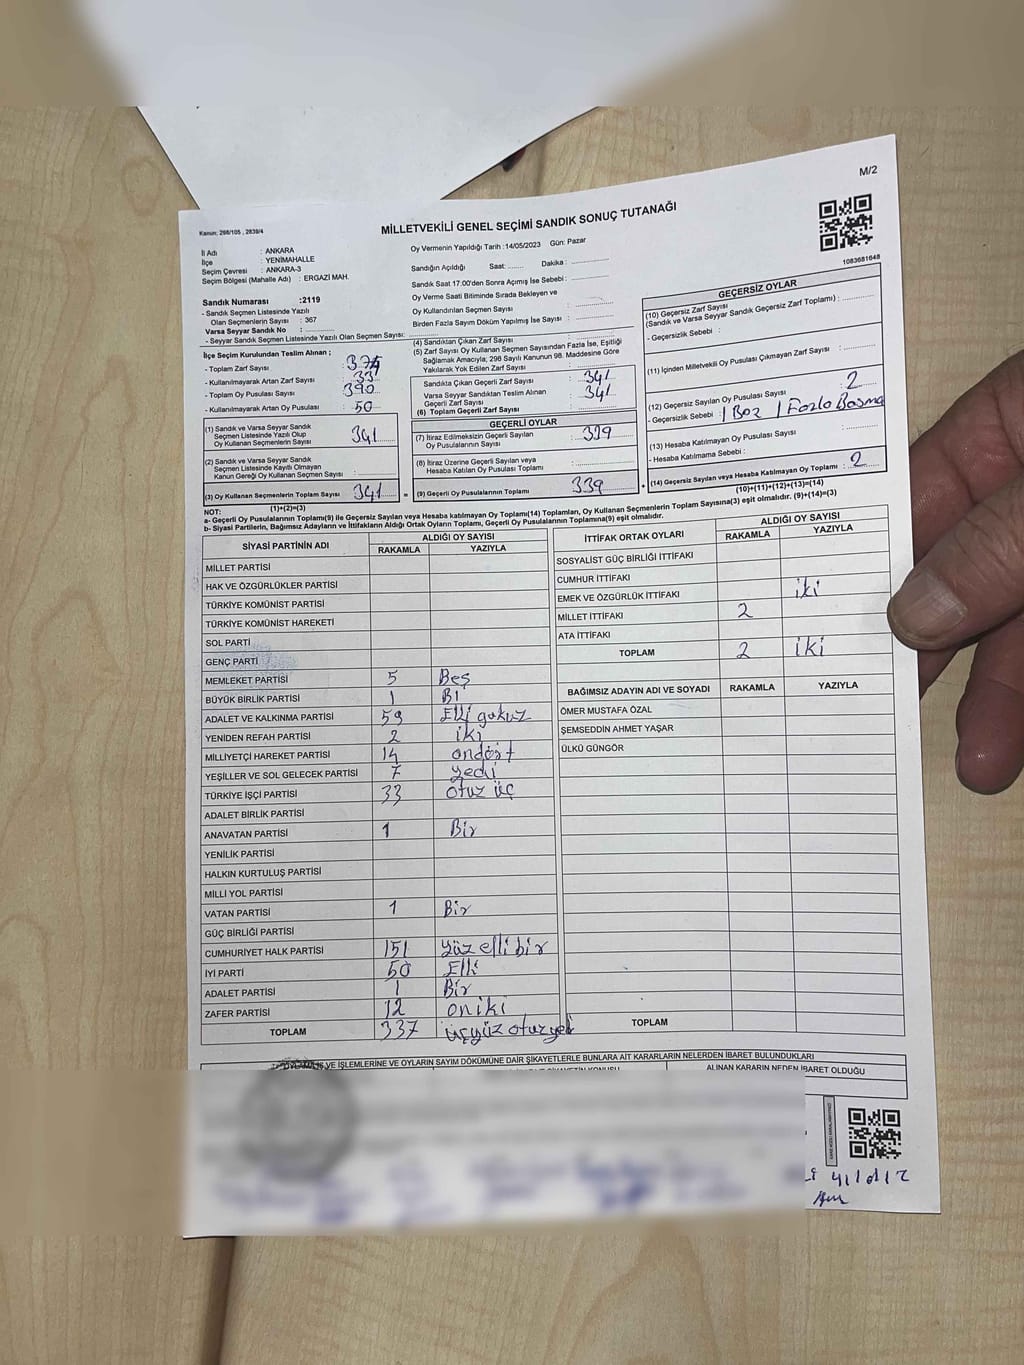 M/2
Kanun; 298/105 , 2839/4
MİLLETVEKİLİ GENEL SEÇİMİ SANDIK SONUÇ TUTANAĞI
1083681648
İl Adı : ANKARA
İlçe : YENİMAHALLE
Seçim Çevresi : ANKARA-3
Seçim Bölgesi (Mahalle Adı) : ERGAZİ MAH.
Sandık Numarası :2119
- Sandık Seçmen Listesinde Yazılı
Olan Seçmenlerin Sayısı : 367
Varsa Seyyar Sandık No :
- Seyyar Sandık Seçmen Listesinde Yazılı Olan Seçmen Sayısı:
Oy Vermenin Yapıldığı Tarih :14/05/2023 Gün: Pazar
Sandığın Açıldığı Saat: Dakika :
Sandık Saat 17.00'den Sonra Açımış İse Sebebi :
Oy Verme Saati Bitiminde Sırada Bekleyen ve
Oy Kullandırılan Seçmen Sayısı :
Birden Fazla Sayım Döküm Yapılmış İse Sayısı :
İlçe Seçim Kurulundan Teslim Alınan ;
- Toplam Zarf Sayısı : 374
- Kullanılmayarak Artan Zarf Sayısı : 33
- Toplam Oy Pusulası : 390
- Kullanılmayarak Artan Oy Pusulası : 50
(1) Sandık ve Varsa Seyyar Sandık
Seçmen Listesinde Yazılı Olup
Oy Kullanan Seçmenlerin Sayısı : 341
(2) Sandık ve Varsa Seyyar Sandık
Seçmen Listesinde Kayıtlı Olmayan
Kanun Gereği Oy Kullanan Seçmen Sayısı :
(3) Oy Kullanan Seçmenlerin Toplam Sayısı : 341
(1)+(2)=(3)
(4) Sandıktan Çıkan Zarf Sayısı :
(5) Zarf Sayısı Oy Kullanan Seçmen Sayısından Fazla İse, Eşitliği
Sağlamak Amacıyla; 298 Sayılı Kanunun 98. Maddesine Göre
Yakılarak Yok Edilen Zarf Sayısı :
Sandıkta Çıkan Geçerli Zarf Sayısı : 341
Varsa Seyyar Sandıktan Teslim Alınan
Geçerli Zarf Sayısı : 341
(6) Toplam Geçerli Zarf Sayısı
GEÇERLİ OYLAR
(7) İtiraz Edilmeksizin Geçerli Sayılan
Oy Pusulalarının Sayısı : 339
(8) İtiraz Üzerine Geçerli Sayılan veya
Hesaba Katılan Oy Pusulası Toplamı :
(9) Geçerli Oy Pusulalarının Toplamı : 339
GEÇERSİZ OYLAR
(10) Geçersiz Zarf Sayısı
(Sandık ve Varsa Seyyar Sandık Geçersiz Zarf Toplamı) :
- Geçersizlik Sebebi :
(11) İçinden Milletvekili Oy Pusulası Çıkmayan Zarf Sayısı :
(12) Geçersiz Sayılan Oy Pusulası Sayısı : 2
- Geçersizlik Sebebi : 1 Boz 1 Fazla Basma
(13) Hesaba Katılmayan Oy Pusulası Sayısı :
- Hesaba Katılmama Sebebi :
(14) Geçersiz Sayılan veya Hesaba Katılmayan Oy Toplamı : 2
(10)+(11)+(12)+(13)=(14)
NOT:
a- Geçerli Oy Pusulalarının Toplamı(9) ile Geçersiz Sayılan veya Hesaba katılmayan Oy Toplamı(14) Toplamları, Oy Kullanan Seçmenlerin Toplam Sayısına(3) eşit olmalıdır. (9)+(14)=(3)
b- Siyasi Partilerin, Bağımsız Adayların ve İttifakların Aldığı Ortak Oyların Toplamı, Geçerli Oy Pusulalarının Toplamına(9) eşit olmalıdır.
SİYASİ PARTİNİN ADI ALDIĞI OY SAYISI
RAKAMLA YAZIYLA
MİLLET PARTİSİ
HAK VE ÖZGÜRLÜKLER PARTİSİ
TÜRKİYE KOMÜNİST PARTİSİ
TÜRKİYE KOMÜNİST HAREKETİ
SOL PARTİ
GENÇ PARTİ
MEMLEKET PARTİSİ 5 Beş
BÜYÜK BİRLİK PARTİSİ 1 Bi
ADALET VE KALKINMA PARTİSİ 59 Elli gokuz
YENİDEN REFAH PARTİSİ 2 iki
MİLLİYETÇİ HAREKET PARTİSİ 14 ondört
YEŞİLLER VE SOL GELECEK PARTİSİ 7 yedi
TÜRKİYE İŞÇİ PARTİSİ 33 otuz üç
ADALET BİRLİK PARTİSİ
ANAVATAN PARTİSİ 1 Bir
YENİLİK PARTİSİ
HALKIN KURTULUŞ PARTİSİ
MİLLİ YOL PARTİSİ
VATAN PARTİSİ 1 Bir
GÜÇ BİRLİĞİ PARTİSİ
CUMHURİYET HALK PARTİSİ 151 yüz elli bir
İYİ PARTİ 50 Elli
ADALET PARTİSİ 1 Bir
ZAFER PARTİSİ 12 oniki
TOPLAM 337 üçyüz otuzyedi
İTTİFAK ORTAK OYLARI ALDIĞI OY SAYISI
RAKAMLA YAZIYLA
SOSYALİST GÜÇ BİRLİĞİ İTTİFAKI
CUMHUR İTTİFAKI
EMEK VE ÖZGÜRLÜK İTTİFAKI
MİLLET İTTİFAKI 2 iki
ATA İTTİFAKI
TOPLAM 2 iki
BAĞIMSIZ ADAYIN ADI VE SOYADI RAKAMLA YAZIYLA
ÖMER MUSTAFA ÖZAL
ŞEMSEDDİN AHMET YAŞAR
ÜLKÜ GÜNGÖR
TOPLAM
VE İŞLEMLERİNE VE OYLARIN SAYIM DÖKÜMÜNE DAİR ŞİKAYETLERLE BUNLARA AİT KARARLARIN NELERDEN İBARET BULUNDUKLARI
ALINAN KARARIN NEDEN İBARET OLDUĞU